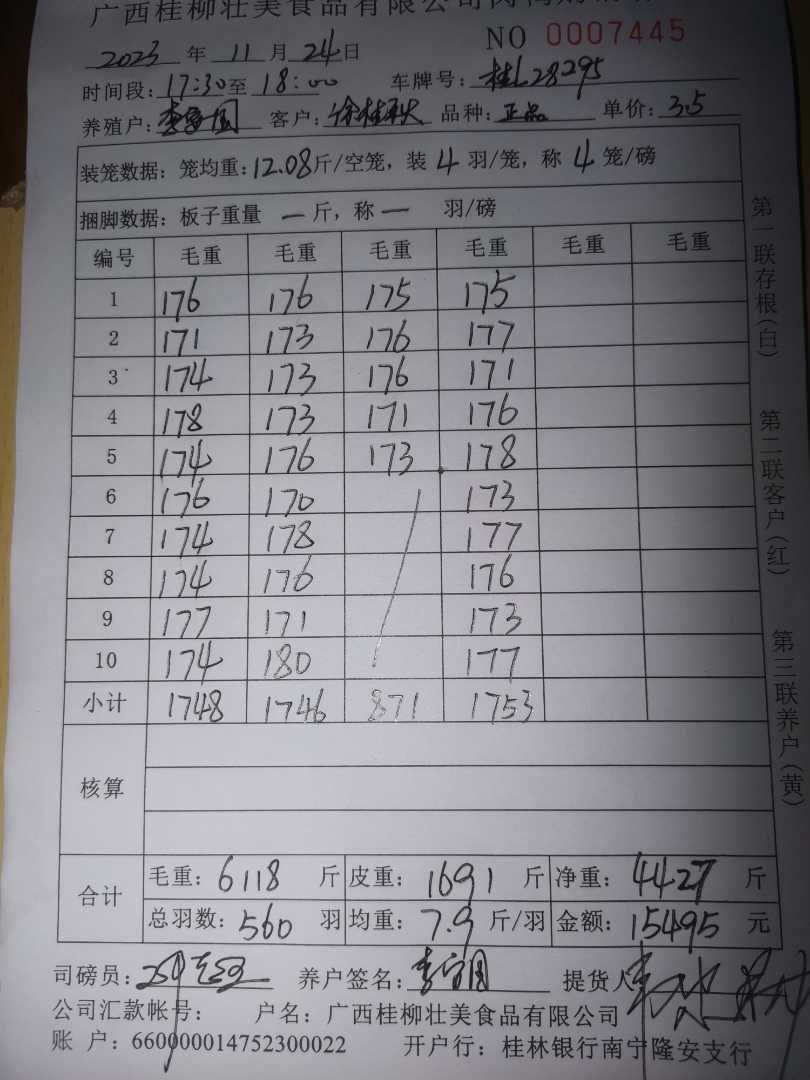 广西桂柳壮美食品有限公司肉鸭购销
2023 年 11 月 24 日 NO 0007445
时间段: 17:30 至 18:00 车牌号: 桂L28295
养殖户: 李 客户: 徐桂 品种: 正品 单价: 3.5
装笼数据: 笼均重: 12.08 斤/空笼, 装 4 羽/笼, 称 4 笼/磅
捆脚数据: 板子重量 一 斤, 称 一 羽/磅
编号 毛重 毛重 毛重 毛重 毛重 毛重
1 176 176 175 175
2 171 173 176 177
3 174 173 176 171
4 178 173 171 176
5 174 176 173 178
6 176 170 173
7 174 178 177
8 174 176 176
9 177 171 173
10 174 180 177
小计 1748 1746 871 1753
核算
合计 毛重: 6118 斤 皮重: 1691 斤 净重: 4427 斤
总羽数: 560 羽 均重: 7.9 斤/羽 金额: 15495 元
司磅员: 养户签名: 李 提货人
公司汇款帐号: 户名: 广西桂柳壮美食品有限公司
账 户: 660000014752300022 开户行: 桂林银行南宁隆安支行
第一联存根(白) 第二联客户(红) 第三联养户(黄)